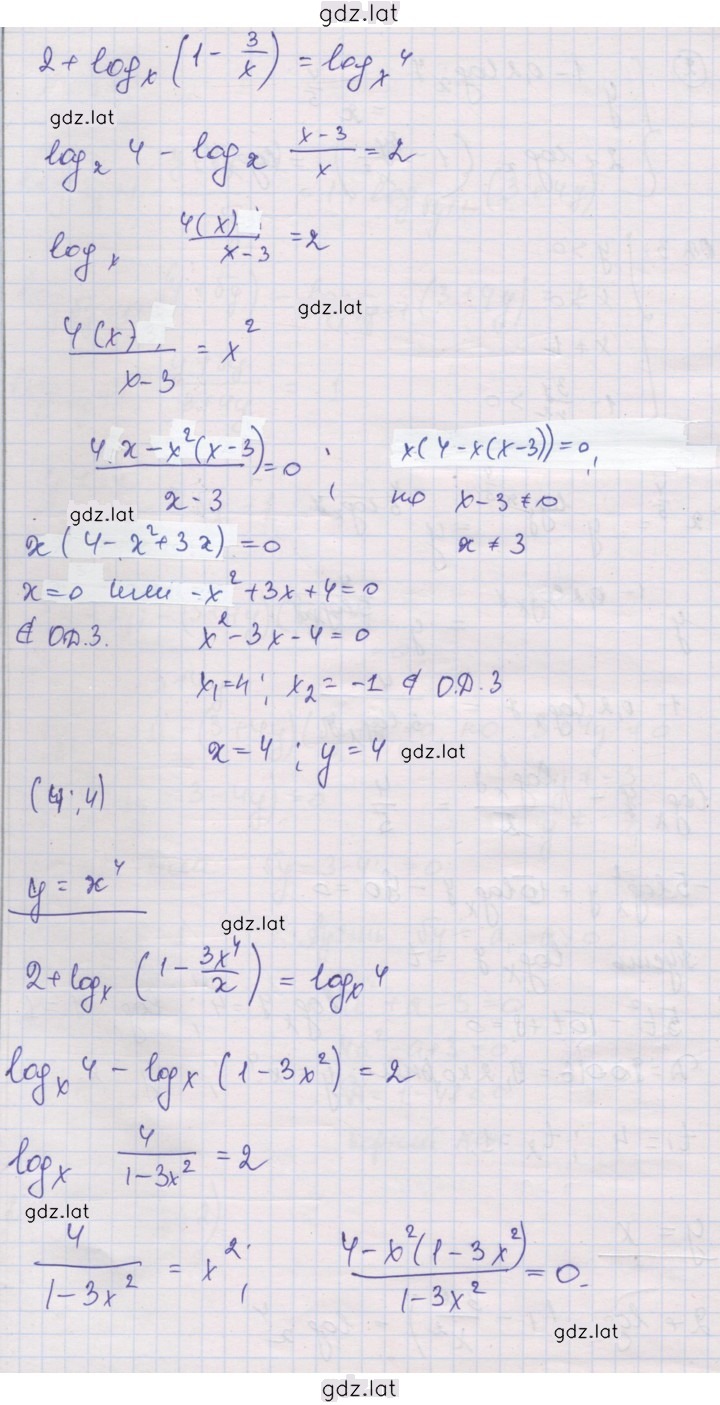 gdz.lat
2 + log_x (1 - 3/x) = log_x 4
gdz.lat
log_x 4 - log_x (x-3)/x = 2
log_x 4(x)/(x-3) = 2
gdz.lat
4(x)/(x-3) = x²
(4x - x²(x-3))/(x-3) = 0 ; x(4-x(x-3))=0,
но x-3≠0
gdz.lat
x(4 - x² + 3x) = 0 x ≠ 3
x=0 или -x² + 3x + 4 = 0
∉ О.Д.З. x² - 3x - 4 = 0
x₁=4 ; x₂ = -1 ∉ О.Д.З
x = 4 ; y = 4 gdz.lat
(4; 4)
y = x⁴
gdz.lat
2 + log_x (1 - 3x⁴/x) = log_x 4
log_x 4 - log_x (1 - 3x²) = 2
log_x 4/(1-3x²) = 2
gdz.lat
4/(1-3x²) = x² ; (4 - x²(1-3x²))/(1-3x²) = 0.
gdz.lat
gdz.lat